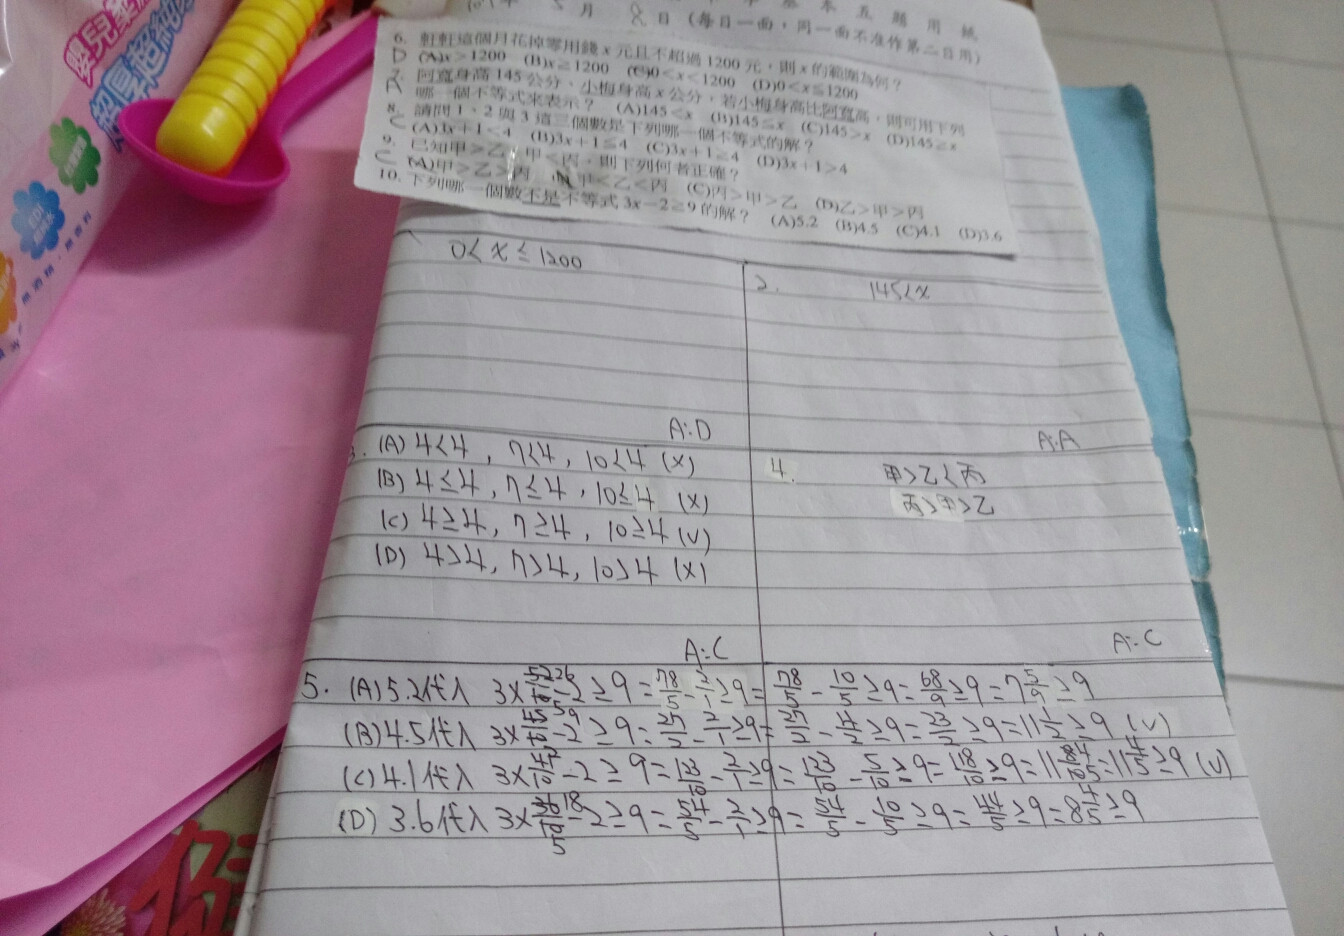 月 8日(每日一面,同一面不准作第二日用)
6. 軒軒這個月花掉零用錢x元且不超過1200元,則x的範圍為何?
D (A)x>1200 (B)x≥1200 (C)0<x<1200 (D)0<x≤1200
7. 阿寬身高145公分、小梅身高x公分,若小梅身高比阿寬高,則可用下列
A 哪一個不等式來表示? (A)145<x (B)145≤x (C)145>x (D)145≥x
8. 請問1、2與3這三個數是下列哪一個不等式的解?
C (A)3x+1<4 (B)3x+1≤4 (C)3x+1≥4 (D)3x+1>4
9. 已知甲>乙,甲<丙,則下列何者正確?
C (A)甲>乙>丙 甲<乙<丙 (C)丙>甲>乙 (D)乙>甲>丙
10. 下列哪一個數不是不等式3x-2≥9的解? (A)5.2 (B)4.5 (C)4.1 (D)3.6
0<x≤1200
2. 145<x
A:D
A:A
3. (A) 4<4, 7<4, 10<4 (X)
(B) 4≤4, 7≤4, 10≤4 (X)
(C) 4≥4, 7≥4, 10≥4 (V)
(D) 4>4, 7>4, 10>4 (X)
A:C
4. 甲>乙<丙
丙>甲>乙
A:C
5. (A) 5.2代入 3× -2≥9=78/5-2/1≥9=78/5-10/5≥9=68/9≥9=7 5/9≥9
(B) 4.5代入 3× -2≥9= -2/1≥9= -4/2≥9=23/2≥9=11 1/2≥9 (V)
(C) 4.1代入 3× -2≥9=123/10-2/1≥9=123/10-5/10≥9=118/10≥9=11 =11 4/5≥9 (V)
(D) 3.6代入 3× -2≥9=54/5-2/1≥9=54/5-10/5≥9=44/5≥9=8 4/5≥9